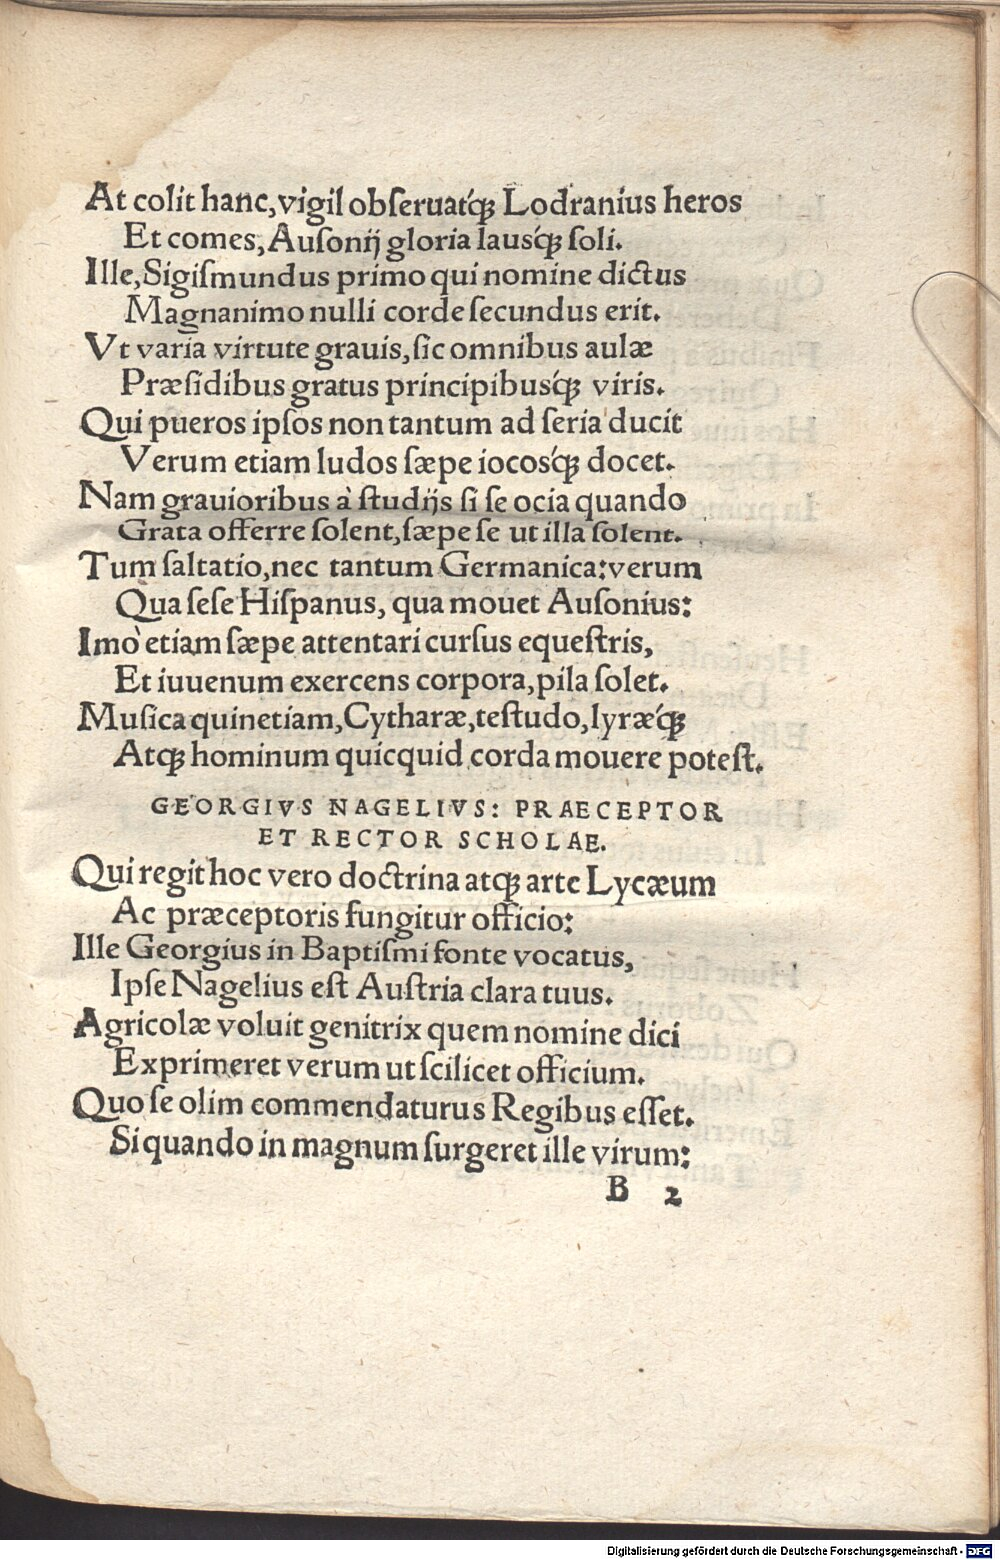 At colit hanc, vigil obſeruatq́ꝫ Lodranius heros
Et comes, Auſonij gloria lausq́ꝫ ſoli.
Ille, Sigiſmundus primo qui nomine dictus
Magnanimo nulli corde ſecundus erit.
Vt varia virtute grauis, ſic omnibus aulæ
Præſidibus gratus principibusq́ꝫ viris.
Qui pueros ipſos non tantum ad ſeria ducit
Verum etiam ludos ſæpe iocosq́ꝫ docet.
Nam grauioribus à ſtudijs ſi ſe ocia quando
Grata offerre ſolent, ſæpe ſe ut illa ſolent.
Tum ſaltatio, nec tantum Germanica: verum
Qua ſeſe Hiſpanus, qua mouet Auſonius:
Imò etiam ſæpe attentari curſus equeſtris,
Et iuuenum exercens corpora, pila ſolet.
Muſica quinetiam, Cytharæ, teſtudo, lyræq́ꝫ
Atqꝫ hominum quicquid corda mouere poteſt.
GEORGIVS NAGELIVS: PRAECEPTOR
ET RECTOR SCHOLAE.
Qui regit hoc vero doctrina atqꝫ arte Lycæum
Ac præceptoris fungitur officio:
Ille Georgius in Baptiſmi fonte vocatus,
Ipſe Nagelius eſt Auſtria clara tuus.
Agricolæ voluit genitrix quem nomine dici
Exprimeret verum ut ſcilicet officium.
Quo ſe olim commendaturus Regibus eſſet.
Si quando in magnum ſurgeret ille virum:
B 2
Digitalisierung gefördert durch die Deutsche Forschungsgemeinschaft - DFG